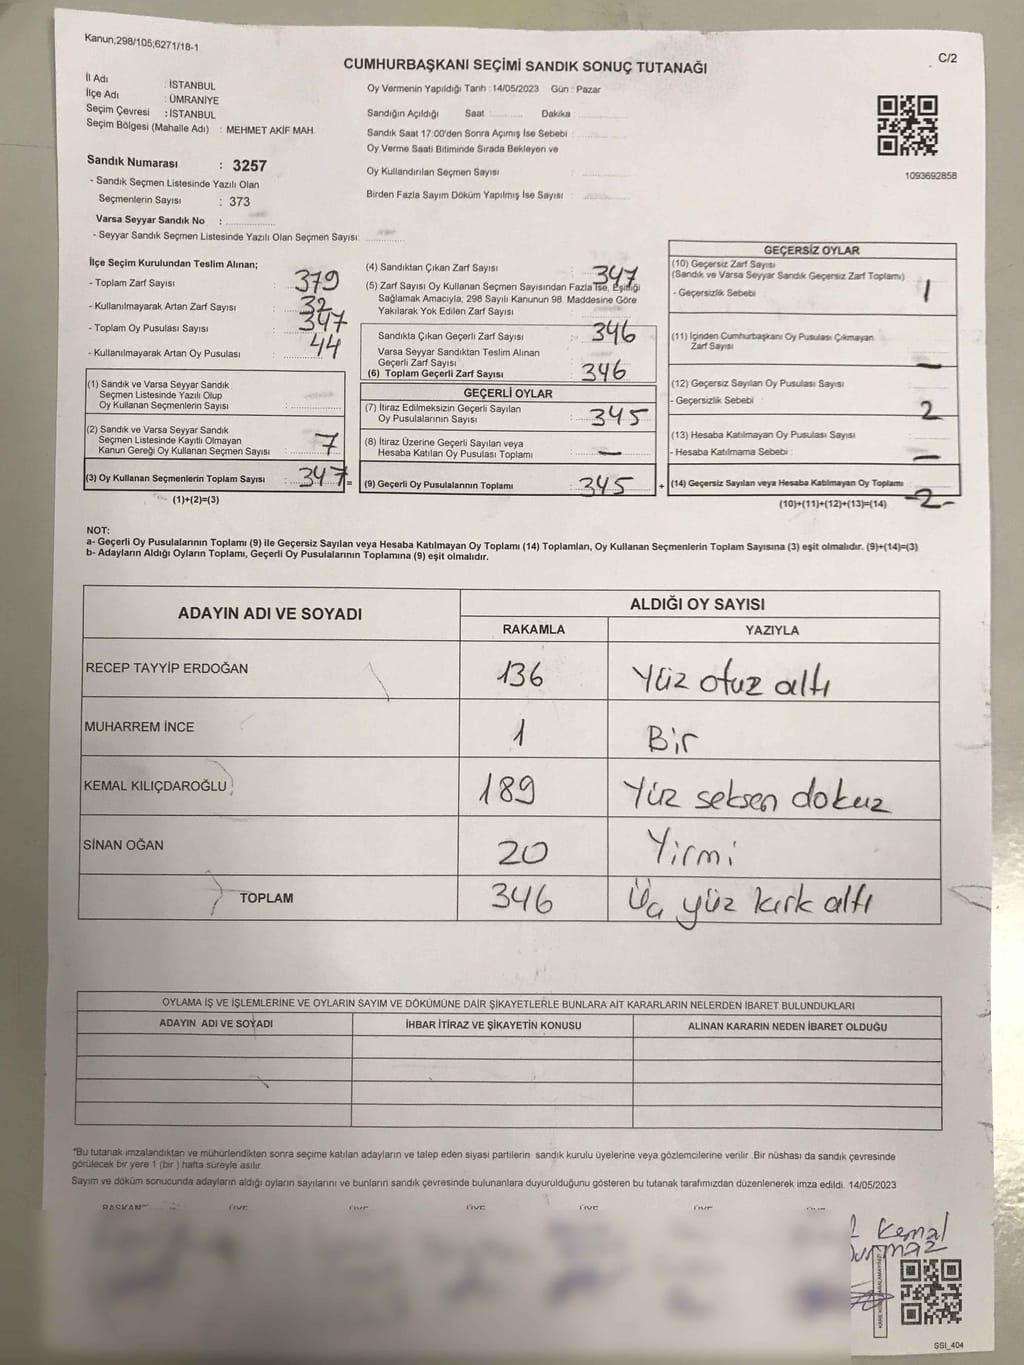 Kanun;298/105;6271/18-1
C/2
CUMHURBAŞKANI SEÇİMİ SANDIK SONUÇ TUTANAĞI
İl Adı : İSTANBUL
İlçe Adı : ÜMRANİYE
Seçim Çevresi : İSTANBUL
Seçim Bölgesi (Mahalle Adı) : MEHMET AKİF MAH.
Sandık Numarası : 3257
- Sandık Seçmen Listesinde Yazılı Olan
Seçmenlerin Sayısı : 373
Varsa Seyyar Sandık No :
- Seyyar Sandık Seçmen Listesinde Yazılı Olan Seçmen Sayısı:
Oy Vermenin Yapıldığı Tarih : 14/05/2023 Gün : Pazar
Sandığın Açıldığı Saat Dakika
Sandık Saat 17:00'den Sonra Açımış İse Sebebi :
Oy Verme Saati Bitiminde Sırada Bekleyen ve
Oy Kullandırılan Seçmen Sayısı :
Birden Fazla Sayım Döküm Yapılmış İse Sayısı :
1093692858
İlçe Seçim Kurulundan Teslim Alınan;
- Toplam Zarf Sayısı : 379
- Kullanılmayarak Artan Zarf Sayısı : 32
- Toplam Oy Pusulası Sayısı : 347
- Kullanılmayarak Artan Oy Pusulası : 44
(1) Sandık ve Varsa Seyyar Sandık
Seçmen Listesinde Yazılı Olup
Oy Kullanan Seçmenlerin Sayısı :
(2) Sandık ve Varsa Seyyar Sandık
Seçmen Listesinde Kayıtlı Olmayan
Kanun Gereği Oy Kullanan Seçmen Sayısı : 7
(3) Oy Kullanan Seçmenlerin Toplam Sayısı : 347 =
(1)+(2)=(3)
(4) Sandıktan Çıkan Zarf Sayısı : 347
(5) Zarf Sayısı Oy Kullanan Seçmen Sayısından Fazla İse, Eşitliği
Sağlamak Amacıyla; 298 Sayılı Kanunun 98. Maddesine Göre
Yakılarak Yok Edilen Zarf Sayısı :
Sandıkta Çıkan Geçerli Zarf Sayısı : 346
Varsa Seyyar Sandıktan Teslim Alınan
Geçerli Zarf Sayısı
(6) Toplam Geçerli Zarf Sayısı : 346
GEÇERLİ OYLAR
(7) İtiraz Edilmeksizin Geçerli Sayılan
Oy Pusulalarının Sayısı : 345
(8) İtiraz Üzerine Geçerli Sayılan veya
Hesaba Katılan Oy Pusulası Toplamı : —
(9) Geçerli Oy Pusulalarının Toplamı : 345 +
GEÇERSİZ OYLAR
(10) Geçersiz Zarf Sayısı
(Sandık ve Varsa Seyyar Sandık Geçersiz Zarf Toplamı)
- Geçersizlik Sebebi 1
(11) İçinden Cumhurbaşkanı Oy Pusulası Çıkmayan
Zarf Sayısı —
(12) Geçersiz Sayılan Oy Pusulası Sayısı
- Geçersizlik Sebebi 2
(13) Hesaba Katılmayan Oy Pusulası Sayısı
- Hesaba Katılmama Sebebi : —
(14) Geçersiz Sayılan veya Hesaba Katılmayan Oy Toplamı -2-
(10)+(11)+(12)+(13)=(14)
NOT:
a- Geçerli Oy Pusulalarının Toplamı (9) ile Geçersiz Sayılan veya Hesaba Katılmayan Oy Toplamı (14) Toplamları, Oy Kullanan Seçmenlerin Toplam Sayısına (3) eşit olmalıdır. (9)+(14)=(3)
b- Adayların Aldığı Oyların Toplamı, Geçerli Oy Pusulalarının Toplamına (9) eşit olmalıdır.
ADAYIN ADI VE SOYADI ALDIĞI OY SAYISI
RAKAMLA YAZIYLA
RECEP TAYYİP ERDOĞAN 136 Yüz otuz altı
MUHARREM İNCE 1 Bir
KEMAL KILIÇDAROĞLU 189 Yüz seksen dokuz
SİNAN OĞAN 20 Yirmi
TOPLAM 346 Üç yüz kırk altı
OYLAMA İŞ VE İŞLEMLERİNE VE OYLARIN SAYIM VE DÖKÜMÜNE DAİR ŞİKAYETLERLE BUNLARA AİT KARARLARIN NELERDEN İBARET BULUNDUKLARI
ADAYIN ADI VE SOYADI İHBAR İTİRAZ VE ŞİKAYETİN KONUSU ALINAN KARARIN NEDEN İBARET OLDUĞU
"Bu tutanak imzalandıktan ve mühürlendikten sonra seçime katılan adayların ve talep eden siyasi partilerin sandık kurulu üyelerine veya gözlemcilerine verilir .Bir nüshası da sandık çevresinde
görülecek bir yere 1 (bir ) hafta süreyle asılır.
Sayım ve döküm sonucunda adayların aldığı oyların sayılarını ve bunların sandık çevresinde bulunanlara duyurulduğunu gösteren bu tutanak tarafımızdan düzenlenerek imza edildi. 14/05/2023
BAŞKAN ÜYE ÜYE ÜYE ÜYE ÜYE ÜYE
Kemal
SSI_404